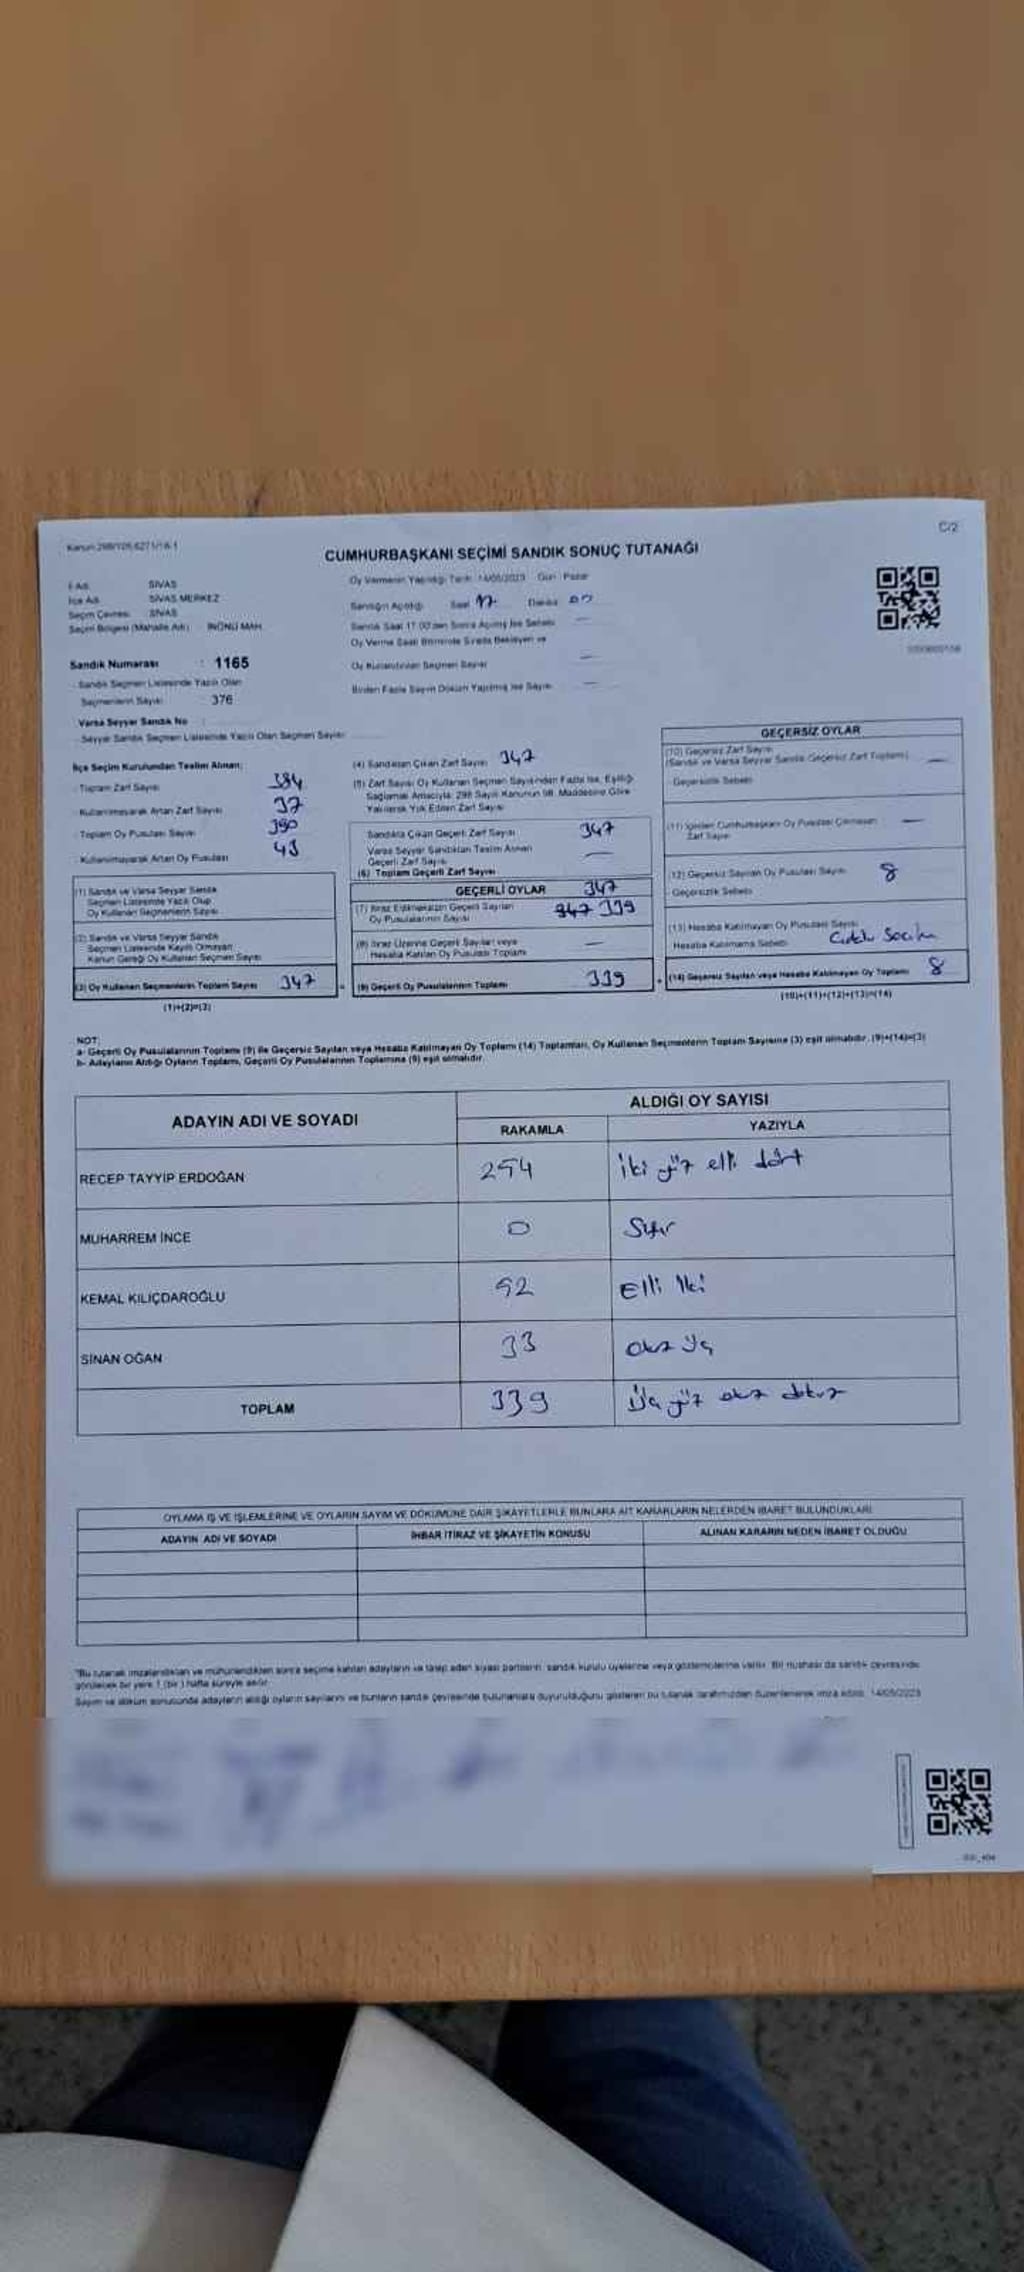 C/2
CUMHURBAŞKANI SEÇİMİ SANDIK SONUÇ TUTANAĞI
İl Adı SİVAS
İlçe Adı SİVAS MERKEZ
Seçim Çevresi SİVAS
Seçim Bölgesi (Mahalle Adı) İNÖNÜ MAH.
Sandık Numarası : 1165
Sandık Seçmen Listesinde Yazılı Olan
Seçmenlerin Sayısı 376
Varsa Seyyar Sandık No :
Seyyar Sandık Seçmen Listesinde Yazılı Olan Seçmen Sayısı
Oy Vermenin Yapıldığı Tarih: 14/05/2023 Gün: Pazar
Sandığın Açıldığı Saat 17 Dakika
Sandık Saat 17.00'den Sonra Açılmış İse Sebebi —
Oy Verme Saati Bitiminde Sırada Bekleyen ve
Oy Kullandırılan Seçmen Sayısı —
Birden Fazla Sayım Döküm Yapılmış İse Sayısı —
İlçe Seçim Kurulundan Teslim Alınan;
Toplam Zarf Sayısı 384
Kullanılmayarak Artan Zarf Sayısı 37
Toplam Oy Pusulası Sayısı 390
Kullanılmayarak Artan Oy Pusulası 43
(1) Sandık ve Varsa Seyyar Sandık
Seçmen Listesinde Yazılı Olup
Oy Kullanan Seçmenlerin Sayısı
(2) Sandık ve Varsa Seyyar Sandık
Seçmen Listesinde Kayıtlı Olmayan
Kanun Gereği Oy Kullanan Seçmen Sayısı
(3) Oy Kullanan Seçmenlerin Toplam Sayısı 347
(1)+(2)=(3)
(4) Sandıktan Çıkan Zarf Sayısı 347
(5) Zarf Sayısı Oy Kullanan Seçmen Sayısından Fazla İse, Eşitliği
Sağlamak Amacıyla, 298 Sayılı Kanunun 98. Maddesine Göre
Yakılarak Yok Edilen Zarf Sayısı
Sandıkta Çıkan Geçerli Zarf Sayısı 347
Varsa Seyyar Sandıktan Teslim Alınan
Geçerli Zarf Sayısı —
(6) Toplam Geçerli Zarf Sayısı 347
GEÇERLİ OYLAR
(7) İtiraz Edilmeksizin Geçerli Sayılan
Oy Pusulalarının Sayısı 347 339
(8) İtiraz Üzerine Geçerli Sayılan veya
Hesaba Katılan Oy Pusulası Toplamı —
(9) Geçerli Oy Pusulalarının Toplamı 339
GEÇERSİZ OYLAR
(10) Geçersiz Zarf Sayısı
(Sandık ve Varsa Seyyar Sandık Geçersiz Zarf Toplamı) —
Geçersizlik Sebebi
(11) İçinden Cumhurbaşkanı Oy Pusulası Çıkmayan
Zarf Sayısı —
(12) Geçersiz Sayılan Oy Pusulası Sayısı 8
Geçersizlik Sebebi
(13) Hesaba Katılmayan Oy Pusulası Sayısı
Hesaba Katılmama Sebebi
(14) Geçersiz Sayılan veya Hesaba Katılmayan Oy Toplamı 8
(10)+(11)+(12)+(13)=(14)
NOT:
a- Geçerli Oy Pusulalarının Toplamı (9) ile Geçersiz Sayılan veya Hesaba Katılmayan Oy Toplamı (14) Toplamları, Oy Kullanan Seçmenlerin Toplam Sayısına (3) eşit olmalıdır. (9)+(14)=(3)
b- Adayların Aldığı Oyların Toplamı, Geçerli Oy Pusulalarının Toplamına (9) eşit olmalıdır.
ADAYIN ADI VE SOYADI ALDIĞI OY SAYISI
RAKAMLA YAZIYLA
RECEP TAYYİP ERDOĞAN 254 İki yüz elli dört
MUHARREM İNCE 0 Sıfır
KEMAL KILIÇDAROĞLU 52 Elli İki
SİNAN OĞAN 33 otuz üç
TOPLAM 339 Üç yüz otuz dokuz
OYLAMA İŞ VE İŞLEMLERİNE VE OYLARIN SAYIM VE DÖKÜMÜNE DAİR ŞİKAYETLERLE BUNLARA AİT KARARLARIN NELERDEN İBARET BULUNDUKLARI
ADAYIN ADI VE SOYADI İHBAR İTİRAZ VE ŞİKAYETİN KONUSU ALINAN KARARIN NEDEN İBARET OLDUĞU
"Bu tutanak imzalandıktan ve mühürlendikten sonra seçime katılan adayların ve talep eden siyasi partilerin, sandık kurulu üyelerine veya gözlemcilerine verilir. Bir nüshası da sandık çevresinde
görülecek bir yere 1 (bir) hafta süreyle asılır.
Sayım ve döküm sonucunda adayların aldığı oyların sayılarını ve bunların sandık çevresinde bulunanlara duyurulduğunu gösteren bu tutanak tarafımızdan düzenlenerek imza edildi. 14/05/2023